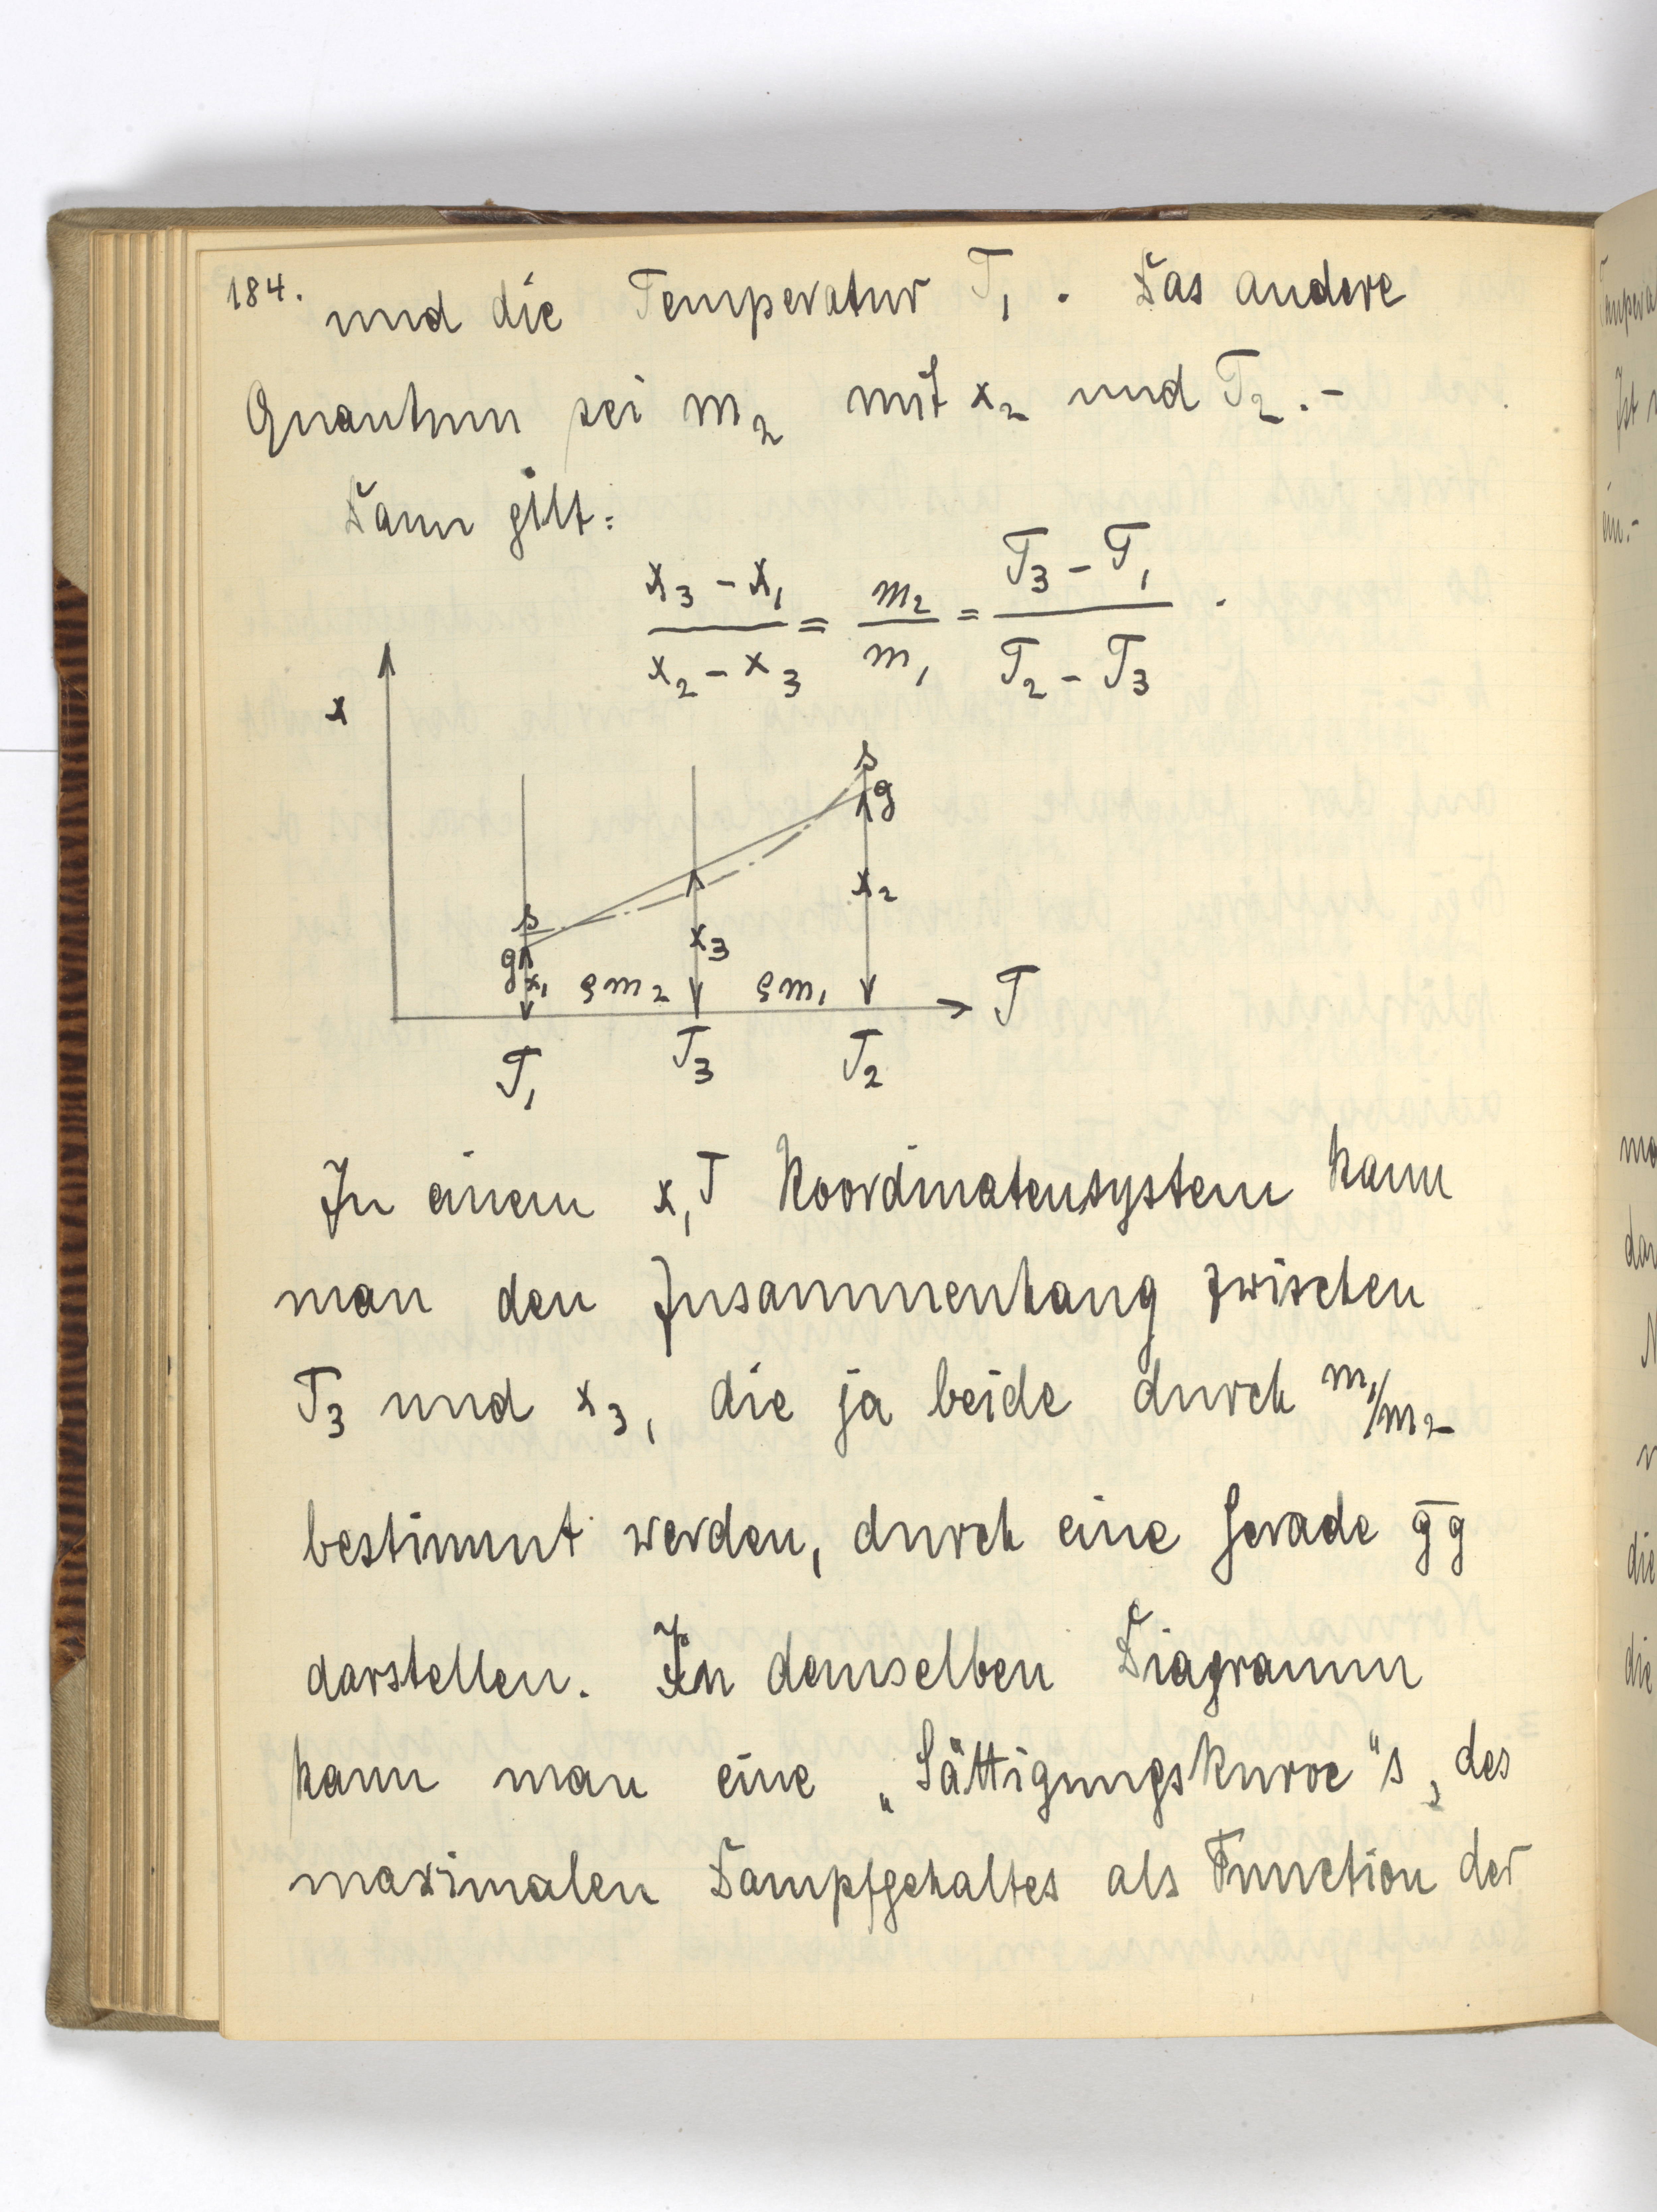 184.
und die Temperatur T₁ . Das andere
Quantum sei m₂ mit x₂ und T₂.-
Dann gilt:
x₃ - x₁ / x₂ - x₃ = m₂ / m₁ = T₃ - T₁ / T₂ - T₃ .
x
s
g
x₂
s
g
x₁
x₃
ϱm₂ ϱm₁
T
T₁ T₃ T₂
In einem x,T Koordinatensystem kann
man den Zusammenhang zwischen
T₃ und x₃, die ja beide durch m₁/m₂
bestimmt werden, durch eine Gerade g̅g
darstellen. In demselben Diagramm
kann man eine „Sättigungskurve" s, des
maximalen Dampfgehaltes als Function der